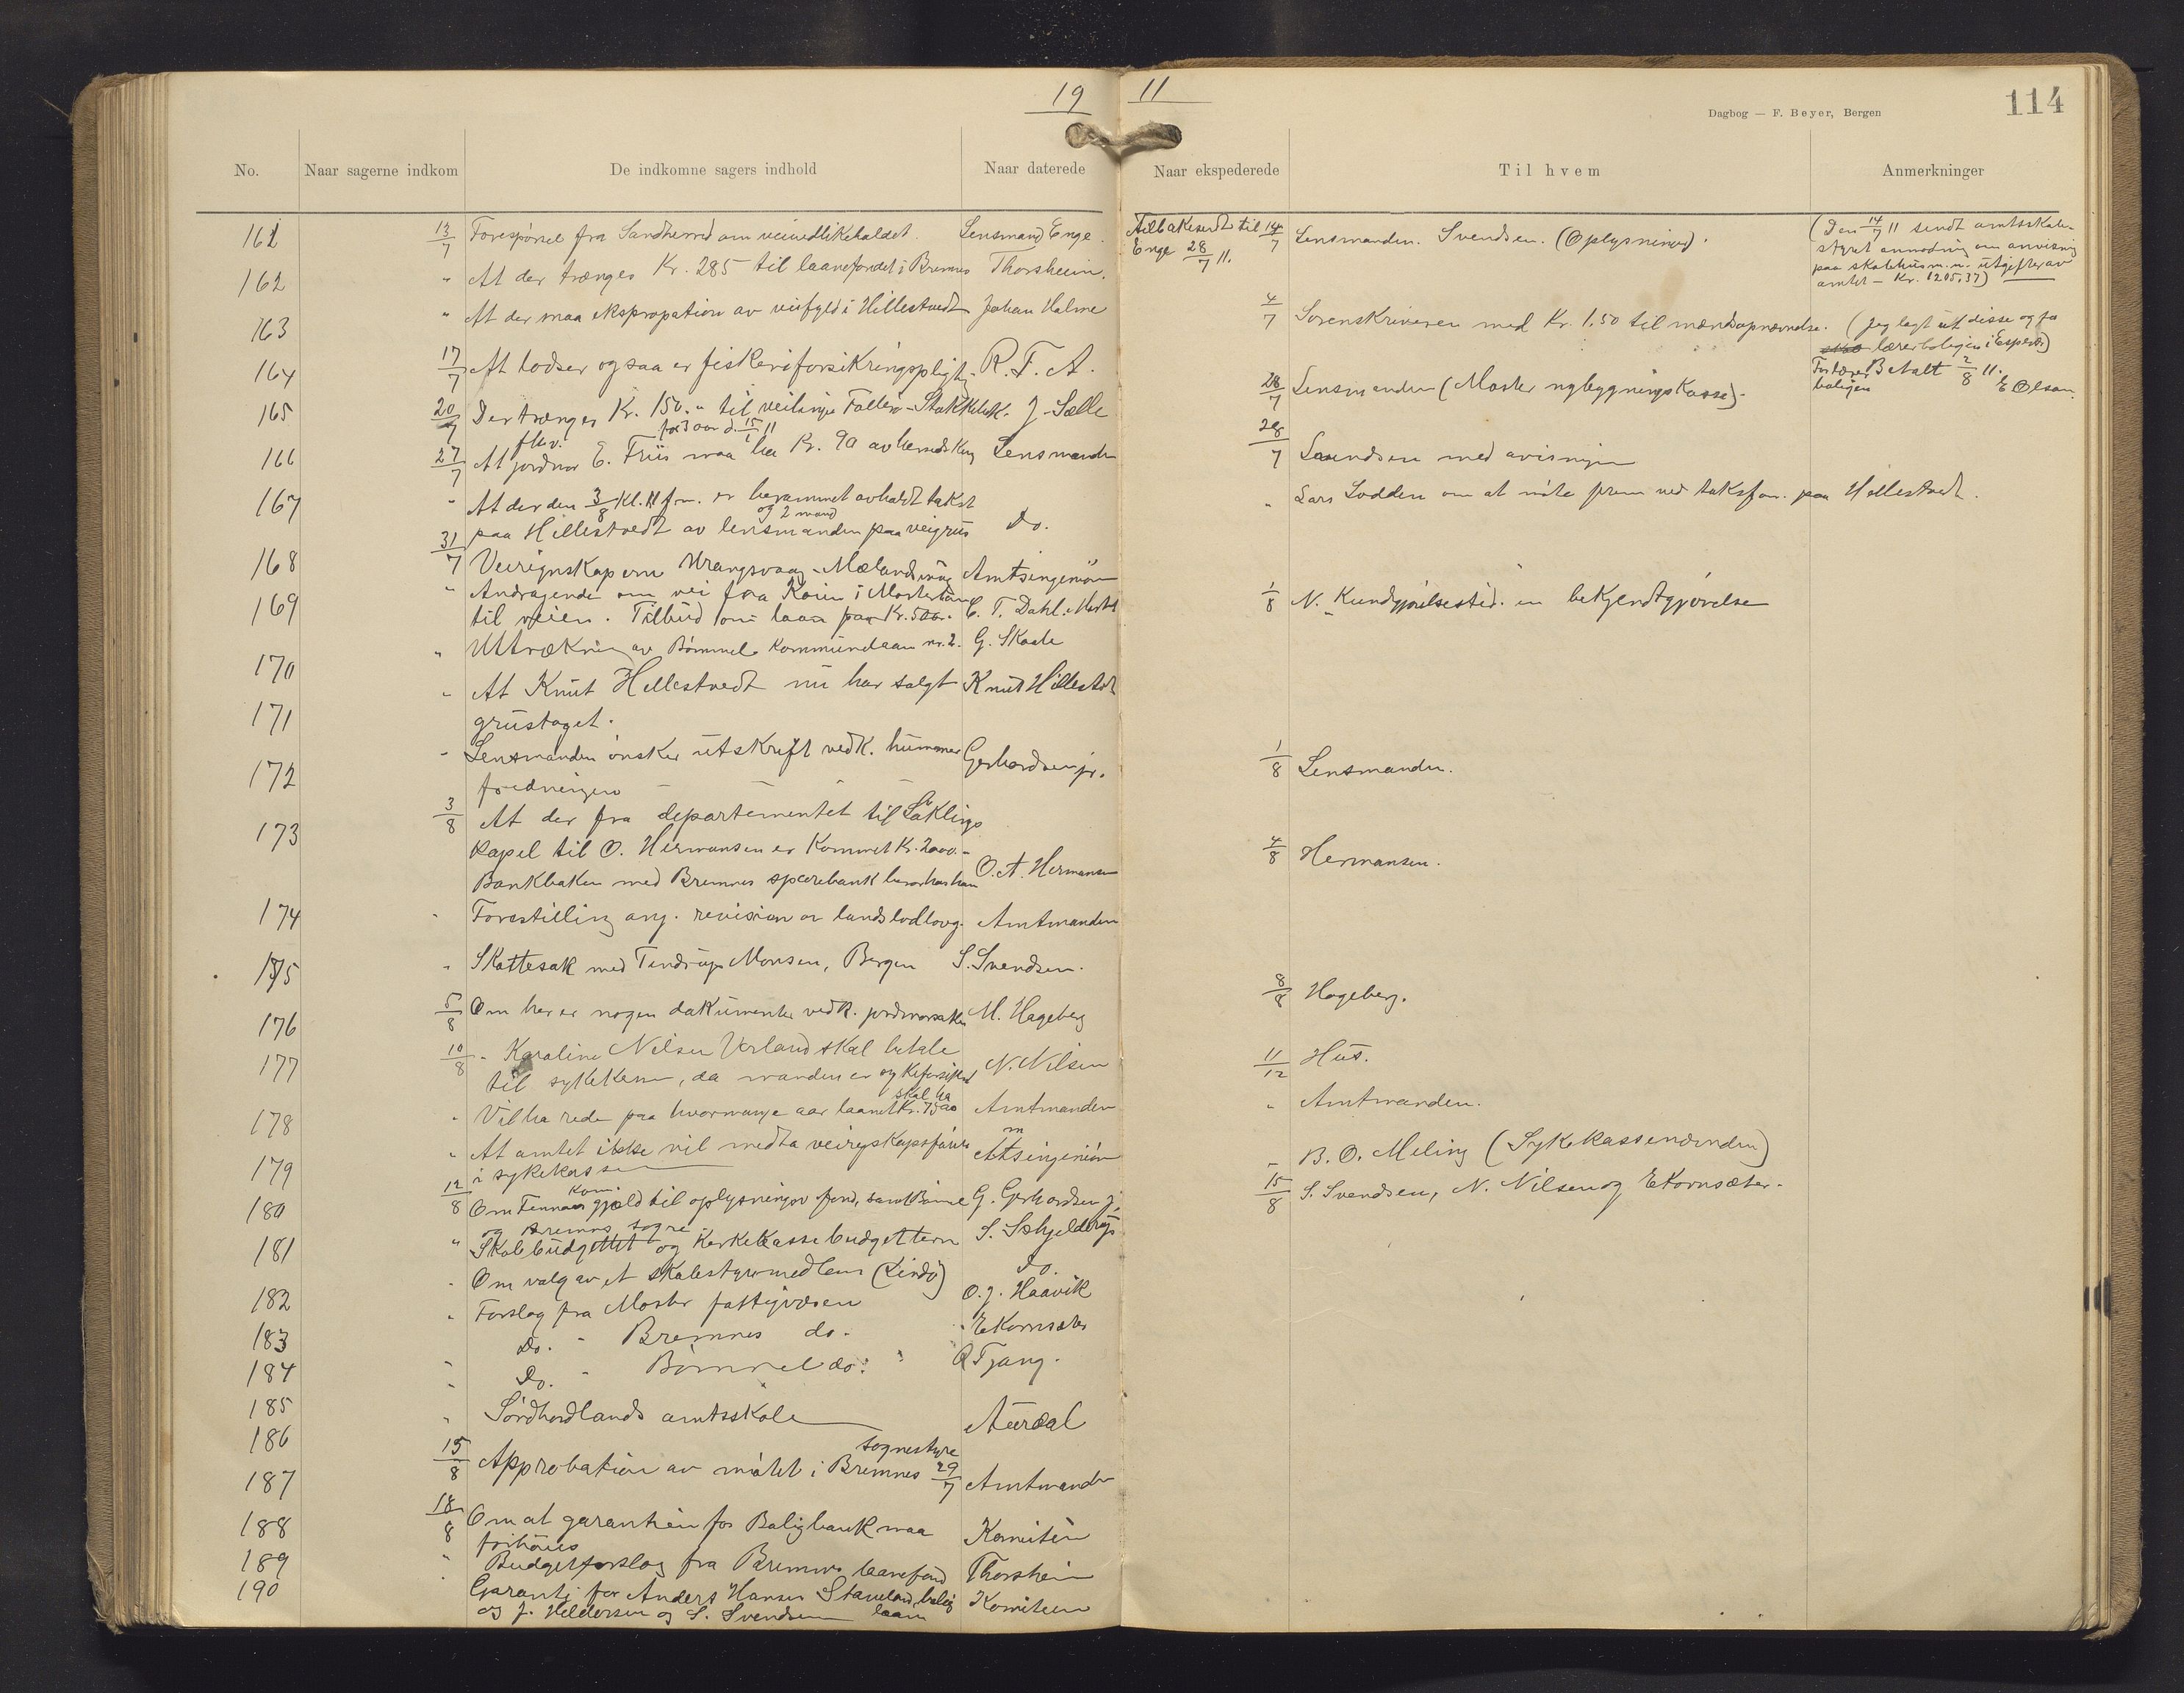 19 11
Dagbog — F. Beyer, Bergen
114
No. Naar sagerne indkom De indkomne sagers indhold Naar daterede Naar ekspederede Til hvem Anmerkninger
161 13/7 Forespørsel fra Sandherred om veivedlikeholdet. Lensmand Enge. Tilbakesendt til 14/7 Lensmanden. Svendsen. (Oplysninger). (Den 14/7 11 sendt amtsskole-
Enge 28/7 11. styret anmodning om anvisning
paa skolehusm.m. utgifter av
amtet – Kr. 1205,37)
162 " At der trænges Kr. 285 til laanefondet i Bremnes Thorsheim.
163 " At der maa ekspropation av veifyld i Hillestvedt Johan Halme 4/7 Sorenskriveren med Kr. 1.50 til mændsopnævnelse. (Jeg lagt ut disse og fra
lærerboligen i Espevær)
164 17/7 At lodser ogsaa er fiskeriforsikringspligtig. R. F. A. For lærerboligen Betalt 2/8 11. E Olsen.
28/7 Lensmanden (Moster nybygningskasse).
165 20/7 Der trænges Kr. 150." til veilinje Follesø-Stokkebek. J. Sælle
for 3 aar d. 15/1 11
166 27/7 At fhv. jordmor E. Friis maa ha Kr. 90 av herredsk. Lensmanden 28/7 Svendsen med avisningen
167 " At der den 3/8 Kl. 11 fm. er berammet avholdt takst
og 2 mænd
paa Hillestvedt av lensmanden paa veigrus Do. " Lars Lodden om at møte frem ved taksfor. paa Hillestvedt.
168 31/7 Veiregnskaperne Urangsvaag-Mælandsvaag Amtsingeniør
169 " Andragende om vei fra Kaien i Mosterhavn
til veien. Tilbud om laan paa Kr. 500.- C. T. Dahl. Moster 1/8 N. Kundgjørelsestid. en bekjendtgjørelse
170 " Uttrækning av Bømmel kommunelaan nr. 2. G. Skaale
171 " At Knut Hillestvedt nu har solgt Knut Hillestvedt
grustaget.
172 " Lensmanden ønsker utskrift vedk. hummer Gerhardsen jr. 1/8 Lensmanden.
fredningen
173 3/8 At der fra departementet til Løklings
kapel til O. Hermansen er kommet Kr. 2000.-
Bankboken med Bremnes sparebank herom har han O. A. Hermansen 4/8 Hermansen.
174 " Forestilling ang. revision av landslodlovg. Amtmanden
175 " Skattesak med Tendrup Monsen, Bergen S. Svendsen.
176 5/8 Om her er nogen dokumenter vedk. jordmorsaken M. Hageberg 8/8 Hageberg.
177 10/8 " Karoline Nilsen Vorland skal betale
til sykekassen, da manden er sykeforsikret N. Nilsen 11/12 Hus.
178 " Vil ha rede paa hvormange aar laanet Kr. 7500 skal ha Amtmanden " Amtmanden.
179 " At amtet ikke vil medta veiregnskapsførere Amtsingeniør " B. O. Meling (Sykekassenævnden)
i sykekassen
180 12/8 Om Finnaas kom. gjæld til oplysningsv. fond, samt Bømmel G. Gerhardsen j. 15/8 S. Svendsen, N. Nilsen og E Kornsæter.
og Bremnes sogne
181 " Skolebudgettet og Kirkekassebudgetterne S. Schjelderup
182 " Om valg av et skolestyremedlem (Lindø) Do.
183 " Forslag fra Moster fattigvæsen O. J. Haavik
184 " Do. " Bremnes do. E Kornsæter
185 " Do. " Bømmel do. " O Tjang.
186 " Søndhordlands amtsskole Aurdal
187 15/8 Approbation av møtet i Bremnes sognestyre 29/7 Amtmanden
188 18/8 Om at garantien for Boligbank maa Komitéen
forhøies
189 " Budgetforslag fra Bremnes laanefond Thorsheim
190 " Garanti for Anders Hansen Staveland, bolig Komiteen
og J. Heldersen og S. Svendsen laan